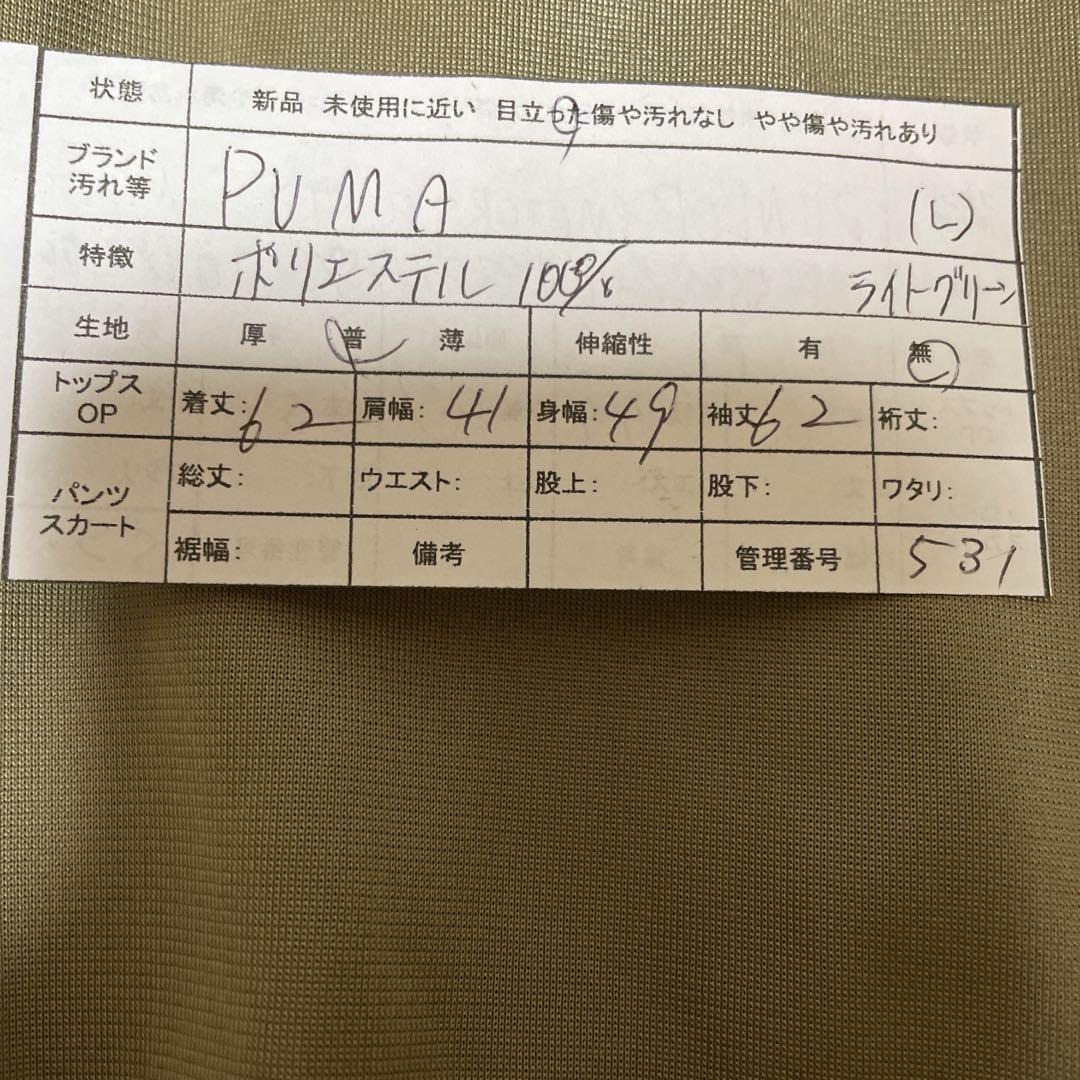 状態 新品 未使用に近い 目立った傷や汚れなし やや傷や汚れあり
ブランド
汚れ等 PUMA (L)
特徴 ポリエステル 100% ライトグリーン
生地 厚 普 薄 伸縮性 有 無
トップス
OP 着丈:62 肩幅:41 身幅:49 袖丈62 裄丈:
パンツ
スカート 総丈: ウエスト: 股上: 股下: ワタリ:
裾幅: 備考 管理番号 531